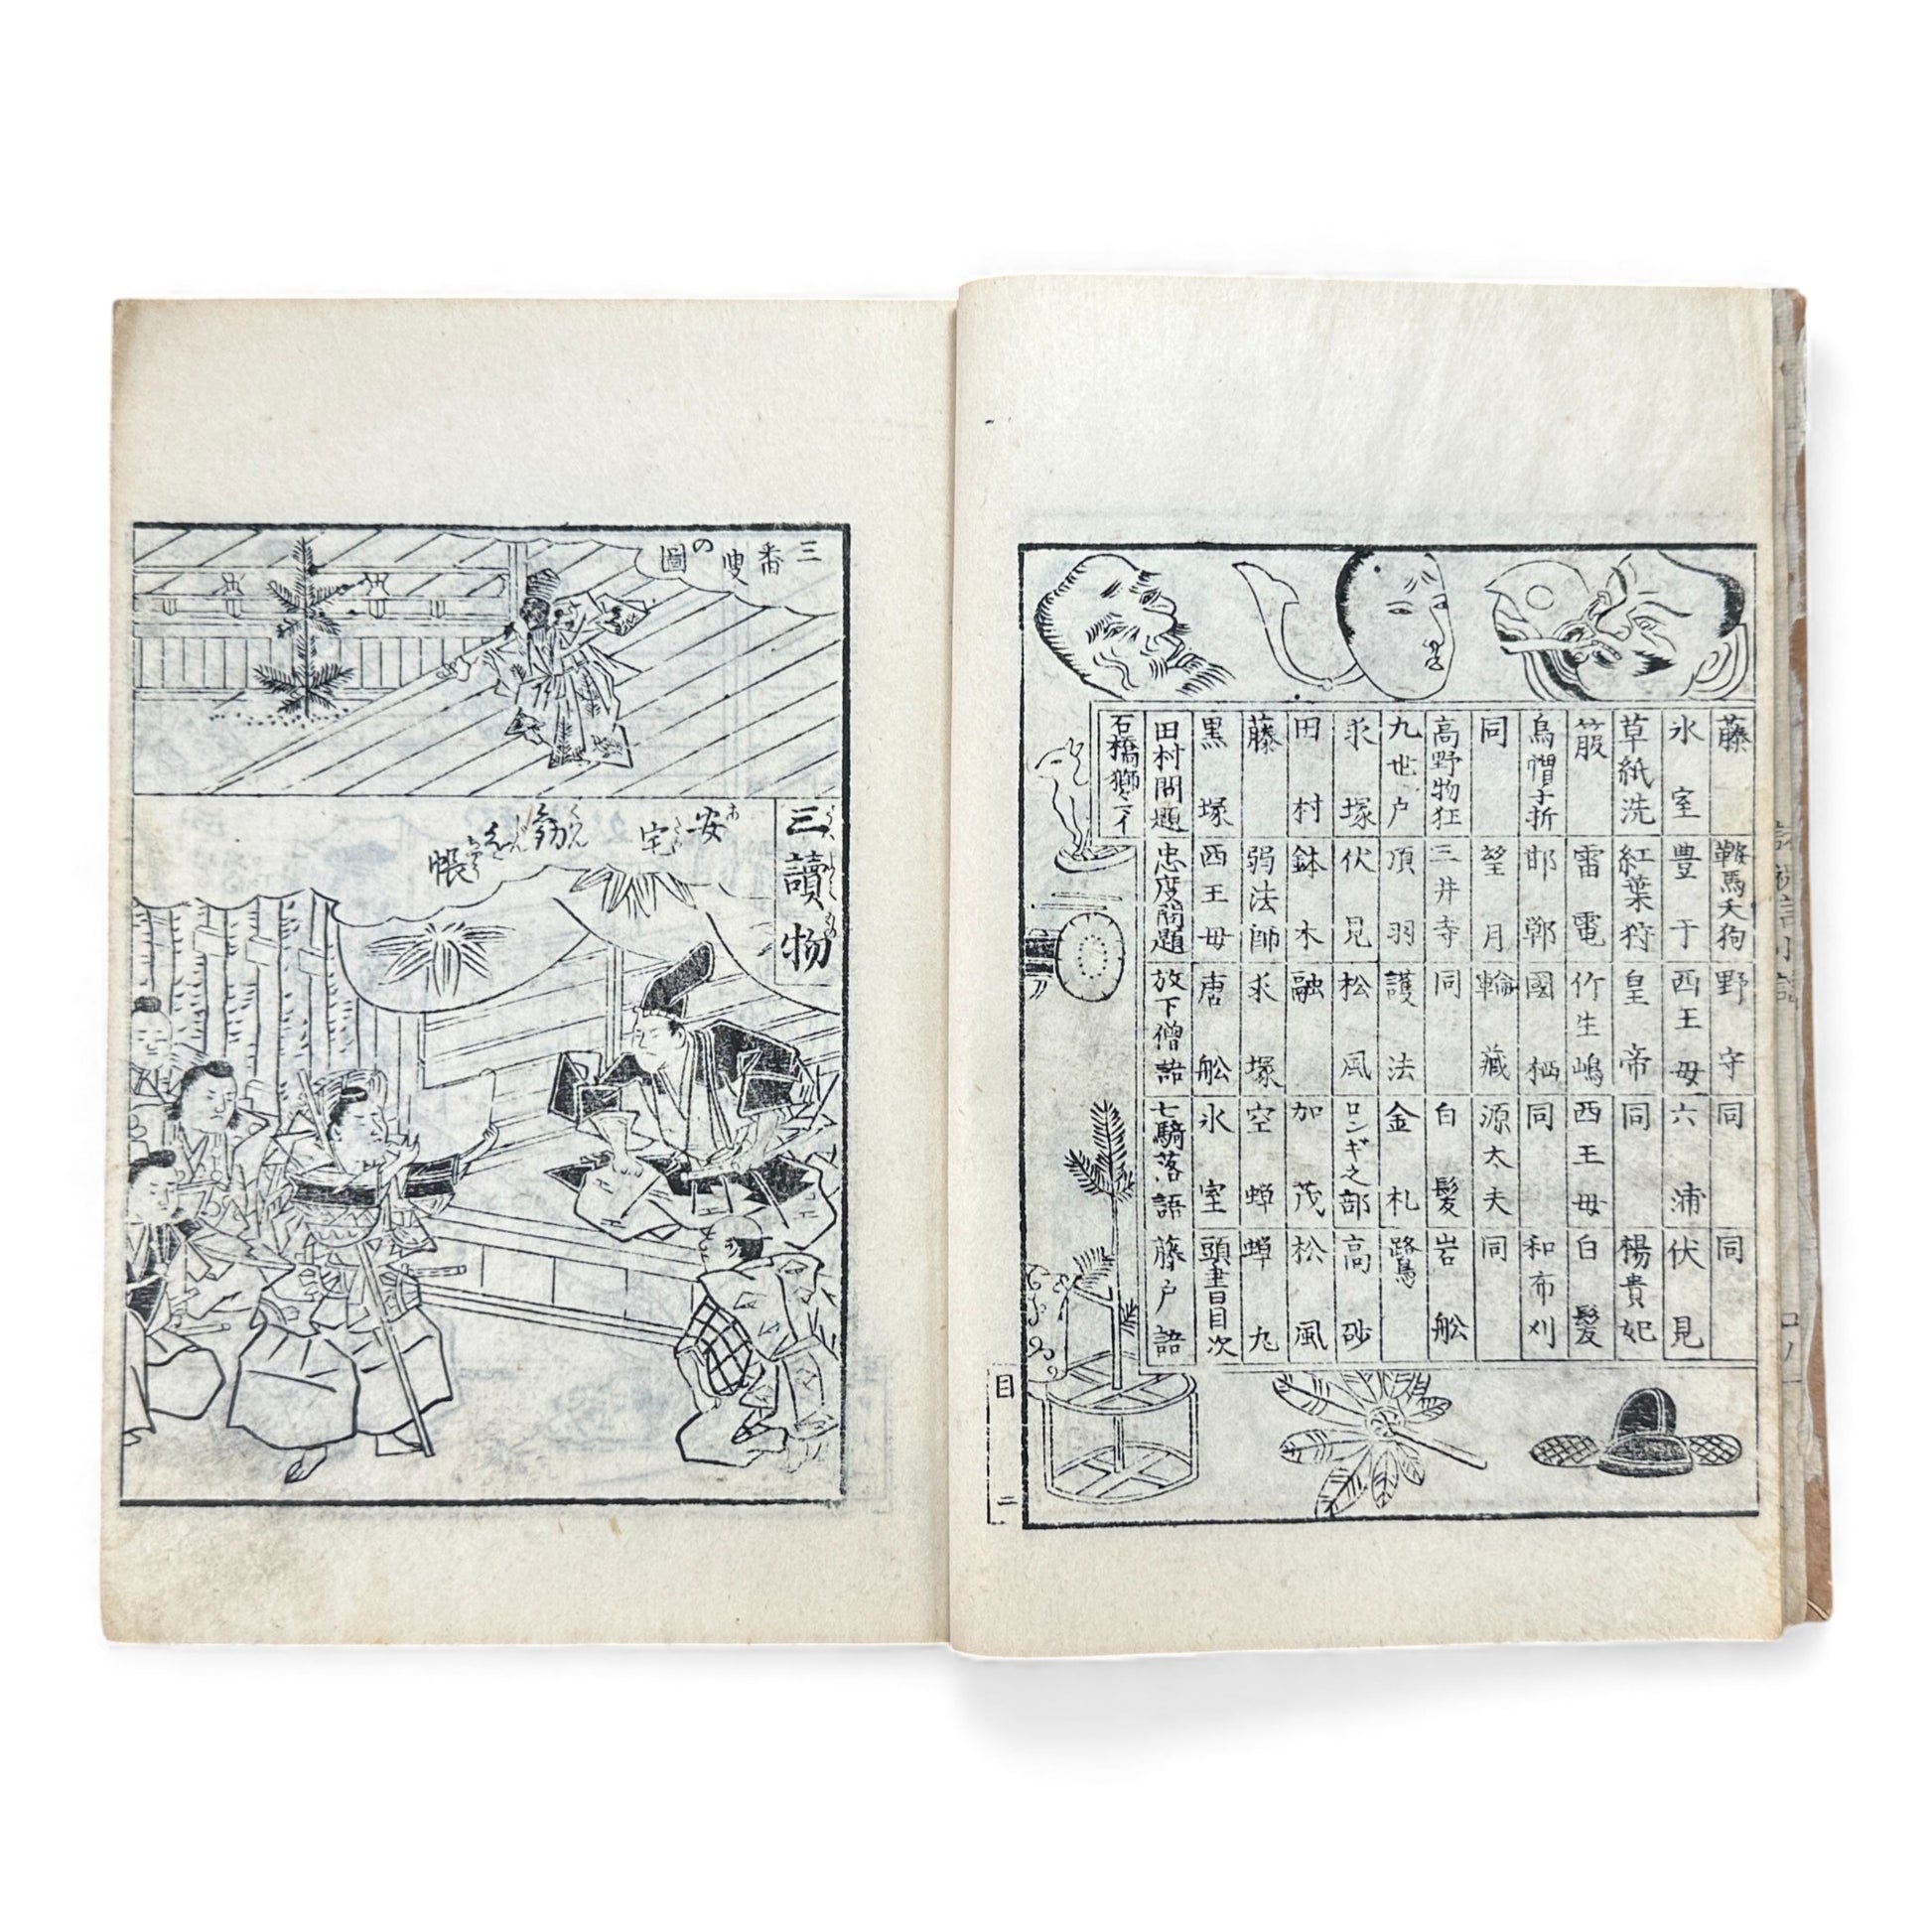 藤　鞍馬天狗　野守　同　同
氷室　豊干　西王母　六浦　伏見
草紙洗　紅葉狩　皇帝　同　楊貴妃
箙　雷電　竹生嶋　西王母　白髪
烏帽子折　邯鄲　國栖　同　和布刈
同　望月　輪藏　源太夫　同
高野物狂　三井寺　同　白髪　岩舩
九世戸　項羽　護法　金札　鷺
求塚　伏見　松風　ロンギ之部　高砂
田村　鉢木　融　加茂　松風
藤　弱法師　求塚　空蝉　蝉丸
黒塚　西王母　唐舩　氷室　頭書目次
田村問題　忠度問題　放下僧語　七騎落語　藤戸語
石橋獅々
目　二
三番叟の圖
三讀物
安宅勧進帳